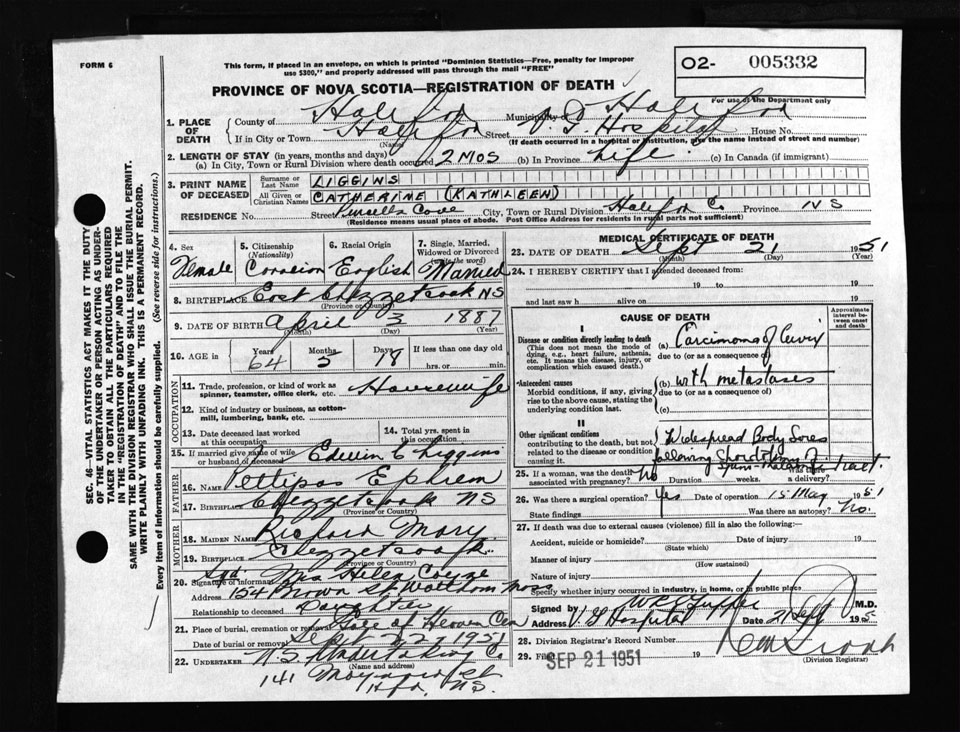 FORM 6
This form, if placed in an envelope, on which is printed "Dominion Statistics—Free, penalty for improper
use $300," and properly addressed will pass through the mail "FREE"
O2- 005332
For use of the Department only
PROVINCE OF NOVA SCOTIA—REGISTRATION OF DEATH
1. PLACE OF DEATH
County of Halifax Municipality Halifax
If in City or Town Halifax (Name) Street V. G. Hospital House No.
(If death occurred in a hospital or institution, give the name instead of street and number)
2. LENGTH OF STAY (in years, months and days)
(a) In City, Town or Rural Division where death occurred 2 MOS (b) In Province Life (c) In Canada (if immigrant)
3. PRINT NAME OF DECEASED
Surname or Last Name LIGGINS
All Given or Christian Names CATHERINE (KATHLEEN)
RESIDENCE No. Street Purcells Cove City, Town or Rural Division Halifax Co Province N S
(Residence means usual place of abode. Post Office Address for residents in rural parts not sufficient)
4. Sex Female
5. Citizenship (Nationality) Canadian
6. Racial Origin English
7. Single, Married, Widowed or Divorced (write the word) Married
8. BIRTHPLACE East Chezzetcook NS
(Province or Country)
9. DATE OF BIRTH April 3 1887
(Month) (Day) (Year)
10. AGE in Years 64 Months 5 Days 18 If less than one day old
hrs. or min.
OCCUPATION
11. Trade, profession, or kind of work as spinner, teamster, office clerk, etc. Housewife
12. Kind of industry or business, as cotton-mill, lumbering, bank, etc.
13. Date deceased last worked at this occupation
14. Total yrs. spent in this occupation
15. If married give name of wife or husband of deceased Edwin C Liggins
FATHER
16. Name Pettipas Ephrem
17. Birthplace Chezzetcook NS
(Province or Country)
MOTHER
18. MAIDEN NAME Richard Mary
19. BIRTHPLACE Chezzetcook
(Province or Country)
20. Signature of informant Sgd. Mrs Helen
Address 154 Brown St Waltham Mass
Relationship to deceased Daughter
21. Place of burial, cremation or removal Gate of Heaven Cem
Date of burial or removal Sept 22 1951
22. UNDERTAKER N.S. Undertaking Co
(Name and address)
141 Maynard St
Hfx, NS.
MEDICAL CERTIFICATE OF DEATH
23. DATE OF DEATH Sept 21 1951
(Month) (Day) (Year)
24. I HEREBY CERTIFY that I attended deceased from:
19 to 19
and last saw h alive on 19
CAUSE OF DEATH
Approximate interval between onset and death
I
Disease or condition directly leading to death
(This does not mean the mode of dying, e.g., heart failure, asthenia, etc. It means the disease, injury, or complication which caused death.)
(a) Carcinoma of Cervix
due to (or as a consequence of)
Antecedent causes
Morbid conditions, if any, giving rise to the above cause, stating the underlying condition last.
(b) with metastases
due to (or as a consequence of)
(c)
II
Other significant conditions
contributing to the death, but not related to the disease or condition causing it.
Widespread Body Sores
following Chordotomy of
Spino-thalamic Tract.
25. If a woman, was the death associated with pregnancy? No Duration weeks. Was there a delivery?
26. Was there a surgical operation? Yes Date of operation 15 May 1951
State findings Was there an autopsy? No.
27. If death was due to external causes (violence) fill in also the following:—
Accident, suicide or homicide? Date of injury 19
(State which)
Manner of injury
(How sustained)
Nature of injury
Specify whether injury occurred in industry, in home, or in public place
Signed by M.D.
Address V. G Hospital Date 21 Sept 195
28. Division Registrar's Record Number
29. Filed SEP 21 1951 19
(Division Registrar)
SEC. 46—VITAL STATISTICS ACT MAKES IT THE DUTY
OF THE UNDERTAKER OR PERSON ACTING AS UNDER-
TAKER TO OBTAIN ALL THE PARTICULARS REQUIRED
IN THE "REGISTRATION OF DEATH" AND TO FILE THE
SAME WITH THE DIVISION REGISTRAR WHO SHALL ISSUE THE BURIAL PERMIT.
WRITE PLAINLY WITH UNFADING INK. THIS IS A PERMANENT RECORD.
Every item of information should be carefully supplied. (See reverse side for instructions.)